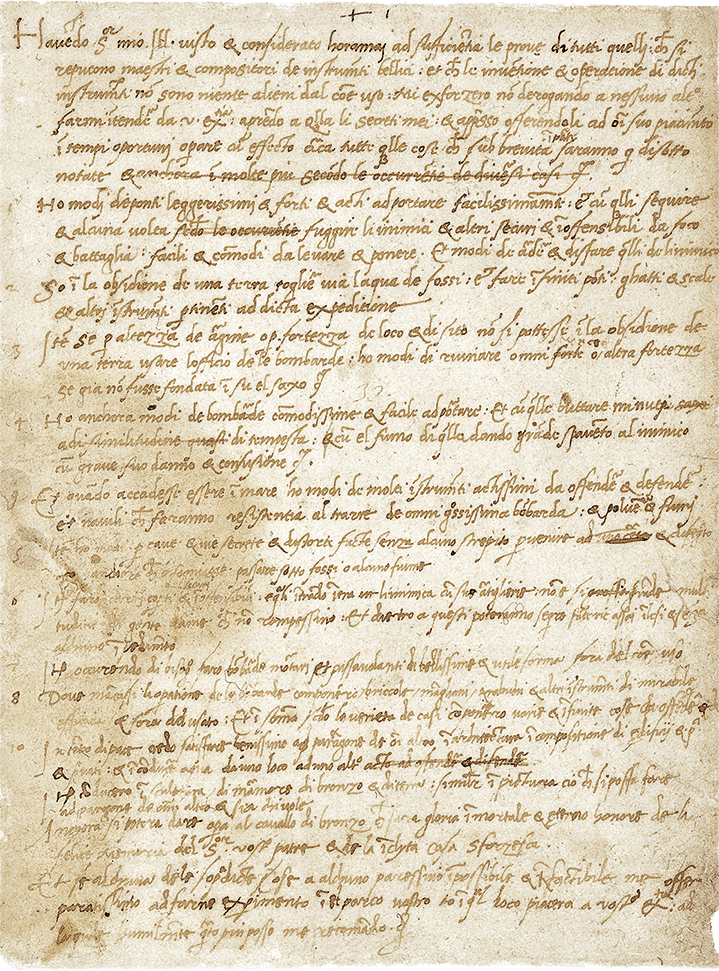 Havēdo Sor mio Ill. visto & considerato horamaj ad sufficiētia le prove di tutti quelli chē si
reputono maestri & compositori de instrumti bellici: et chē le invētione & operatione di dicti
instrumti nō sono niente alieni dal cōe uso: Mi exforzero nō derogando a nessuno alto
farmi ītendē da v. extia: aprēdo a qlla li secreti mei: & appsso offerendoli ad ōi suo piacimto
ī tempi oportuni operare cū effecto tutte qlle cose chē sub brevita ī pte saranno q disotto
notate & anchora ī molte piu secōdo le occurrētie de divēsi casi
1 Ho modi de ponti leggerissimi & forti & acti ad portare facilissimamte: & cū qlli seguire
& alcuna volta secōdo le occurrētie fuggire li inimici & altri securi & īoffensibili da foco
& battaglia: facili & cōmodi da levare & ponere. Et modi de ardē & disfare qlli de linimico
2 So ī la obsidione de una terra togliē via laqua de fossi: & fare īfiniti pōti ghatti & scale
& altri īstrumti ptinēti ad dicta expeditione
3 Itē se p altezza de argine o p fortezza de loco & di sito nō si pottesse ī la obsidione de
una terra usare lofficio de le bombarde: ho modi di ruinare omni forte o altra fortezza
se gia nō fusse fondata ī su el saxo
4 Ho anchora modi de bombarde cōmodissime & facile ad portare: Et cū qlle buttare minuti saxi
ad similitudine quasi di tempesta: & cū el fumo di qlla dando grāde spavēto al inimico
cū grave suo danno & cōfusione
9 Et quādo accadesse essere ī mare ho modi de molti īstrumti actissimi da offendē & defendē
et navili chē faranno resistentia al trarre de omni grossissima bōbarda: & polvē & fumi
5 Itē ho modi p cave & vie secrete & distorte facte senza alcuno strepito pvenire ad & disegto
passare sotto fossi o alcuno fiume
6 Itē faro carri coperti & : e qli ītrādo ī era ne linimica cū sue artiglierie nō e si grāde multi
tudine di gēte darme chē nō rompessino: Et dietro a questi poterāno sequire fanterie assai īlesi & senza
alcuno īpedimto
7 Itē occurrendo di bisogno faro bōbarde mortari & passavolanti di bellissime & utile forme fora del cōe uso
8 Dove mācassi la opatione de le bōbarde cōponero briccole manghani trabuchi & altri īstrumti di mirabile
efficacia & fora del usato: Et ī sōma secōdo la varieta de casi cōponero varie & īfinite cose da offēdē &
10 I tēpo di pace credo satisfare benissimo ad paragone de ōi altro ī architectura ī compositione di edificij & pu
& privati: & ī cōducē aqua da uno loco ad uno alto acto ad offendē & difendē
Itē cōducero ī sculptura di marmore di bronzo & di terra: similē ī pictura cio chē si possa fare
ad paragone de omni altro & sia chi vole
Ancora si potera dare opa al cavallo di bronzo chē sara gloria īmortale & eterno honore de la
felice memoria del Sor vostro patre & de la īclyta casa Sforzesca
Et se alchuna de le sopra dicte cose a alchuno paressino īpossibile & īfactibile me offer
paratissimo ad farne experimento ī el parco vostro o ī qual loco piacera a vostra extia: ad
la quale humilmte quāto piu posso me recomādo